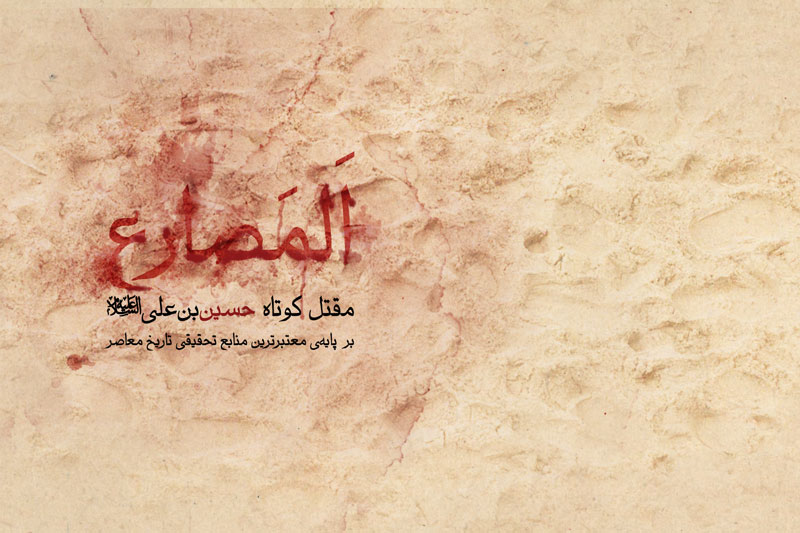 اَلمَصارع
مقتل کوتاه حسین‌بن‌علی علیه‌السلام
بر پایه‌ی معتبرترین منابع تحقیقی تاریخ معاصر